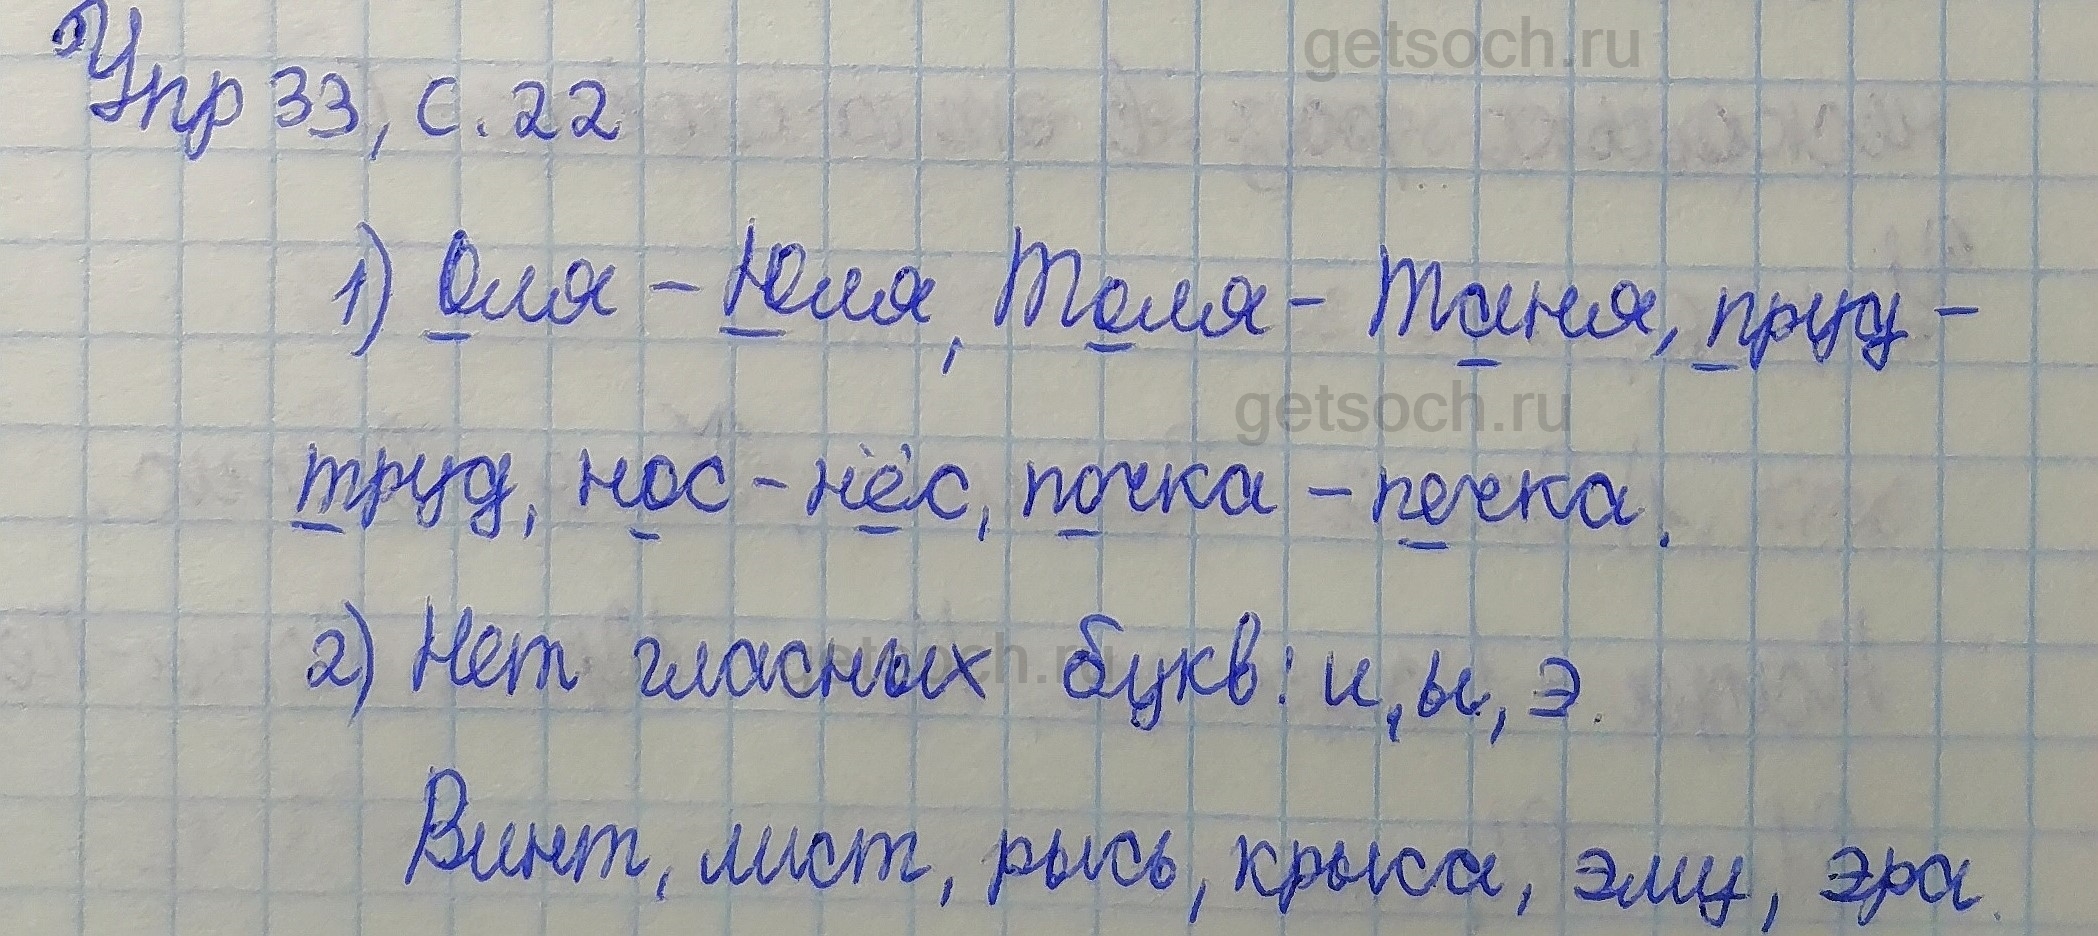 getsoch.ru
Упр 33, с. 22
1) Оля - Юля, Толя - Таня, пруд -
getsoch.ru
труд, нос - нёс, почка - печка.
getsoch.ru
2) Нет гласных букв: и, ы, э.
Винт, лист, рысь, крыса, эму, эра.